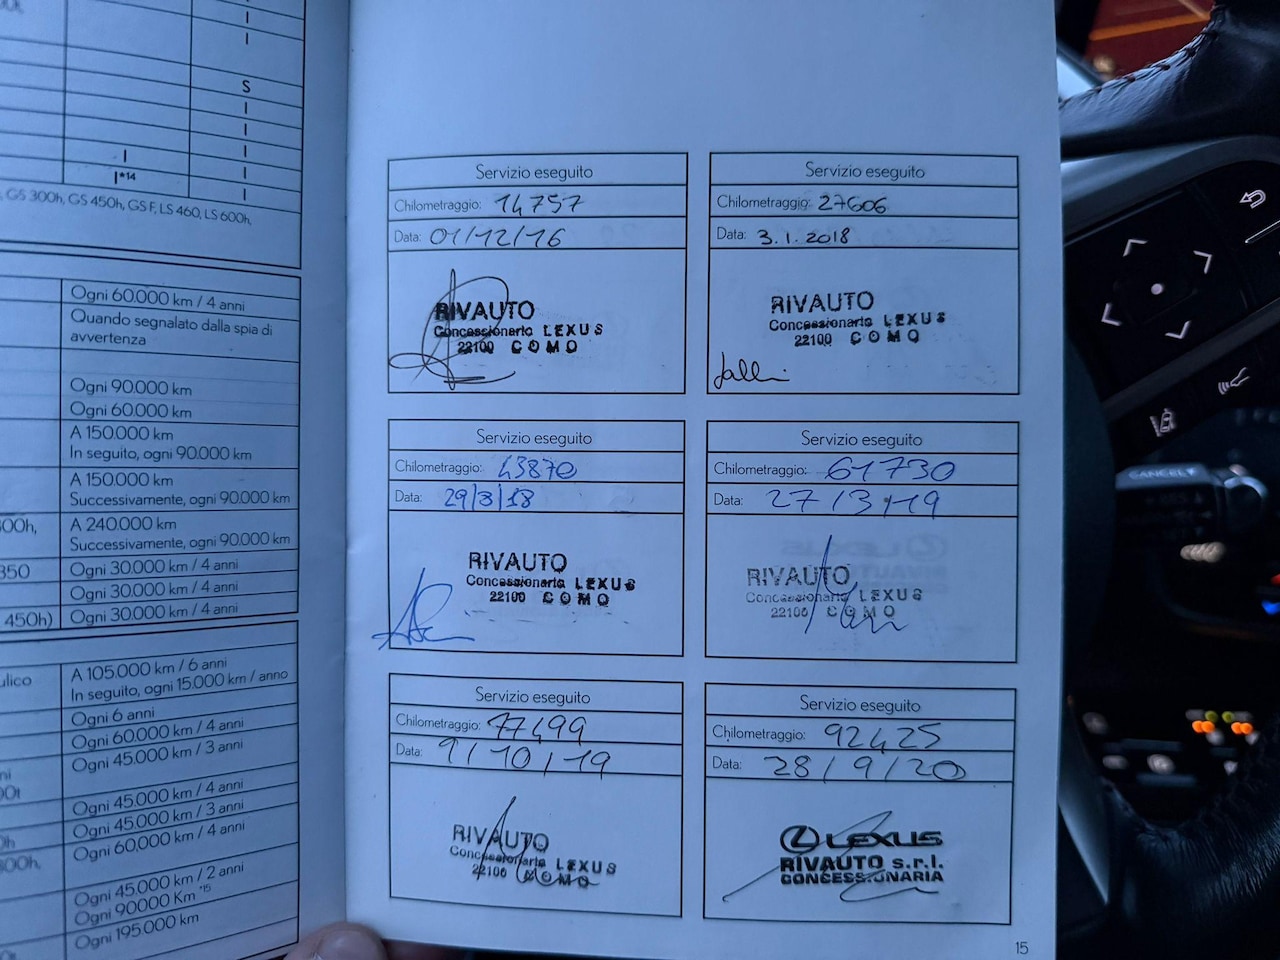 S
I
I
I
I
I
I*14
, GS 300h, GS 450h, GS F, LS 460, LS 600h,
Ogni 60.000 km / 4 anni
Quando segnalato dalla spia di
avvertenza
Ogni 90.000 km
Ogni 60.000 km
A 150.000 km
In seguito, ogni 90.000 km
A 150.000 km
Successivamente, ogni 90.000 km
A 240.000 km
Successivamente, ogni 90.000 km
350 Ogni 30.000 km / 4 anni
Ogni 30.000 km / 4 anni
450h) Ogni 30.000 km / 4 anni
ulico A 105.000 km / 6 anni
In seguito, ogni 15.000 km / anno
Ogni 6 anni
Ogni 60.000 km / 4 anni
Ogni 45.000 km / 3 anni
Ogni 45.000 km / 4 anni
Ogni 45.000 km / 3 anni
Ogni 60.000 km / 4 anni
Ogni 45.000 km / 2 anni
Ogni 90000 Km *15
Ogni 195.000 km
Servizio eseguito
Chilometraggio: 14757
Data: 01/12/16
RIVAUTO
Concessionario LEXUS
22100 COMO
Servizio eseguito
Chilometraggio: 27606
Data: 3.1.2018
RIVAUTO
Concessionario LEXUS
22100 COMO
Servizio eseguito
Chilometraggio: 43870
Data: 29/8/18
RIVAUTO
Concessionario LEXUS
22100 COMO
Servizio eseguito
Chilometraggio: 61730
Data: 27/3/19
RIVAUTO
Concessionario LEXUS
22100 COMO
Servizio eseguito
Chilometraggio: 77499
Data: 9/10/19
RIVAUTO
Concessionario LEXUS
22100 COMO
Servizio eseguito
Chilometraggio: 92425
Data: 28/9/20
LEXUS
RIVAUTO s.r.l.
CONCESSIONARIA
15
CANCEL